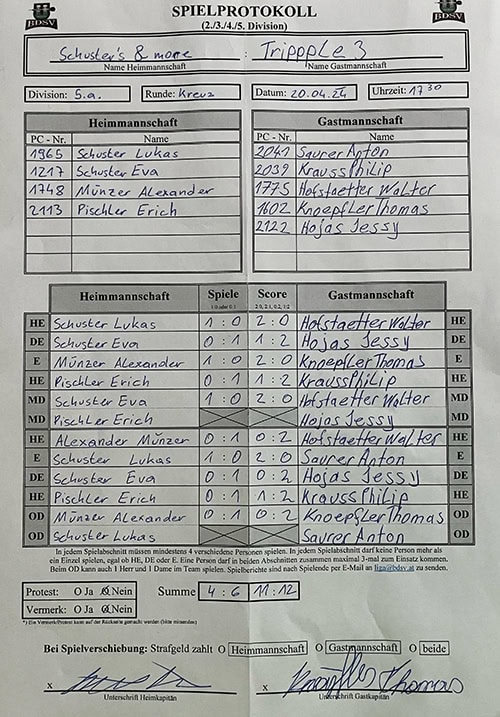 BDSV SPIELPROTOKOLL BDSV
(2./3./4./5. Division)
Schuster's & more : Trippple 3
Name Heimmannschaft Name Gastmannschaft
Division: 5.a. Runde: Kreuz Datum: 20.04.24 Uhrzeit: 17 30
Heimmannschaft Gastmannschaft
PC - Nr. Name PC - Nr. Name
1965 Schuster Lukas 2041 Saurer Anton
1217 Schuster Eva 2039 Krauss Philip
1748 Münzer Alexander 1775 Hofstaetter Walter
2113 Pischler Erich 1602 Knoepfler Thomas
2122 Hojas Jessy
Heimmannschaft Spiele Score Gastmannschaft
1:0 oder 0:1 2:0, 2:1, 0:2, 1:2
HE Schuster Lukas 1 : 0 2 : 0 Hofstaetter Walter HE
DE Schuster Eva 0 : 1 1 : 2 Hojas Jessy DE
E Münzer Alexander 1 : 0 2 : 0 Knoepfler Thomas E
HE Pischler Erich 0 : 1 1 : 2 Krauss Philip HE
MD Schuster Eva 1 : 0 2 : 0 Hofstaetter Walter MD
MD Pischler Erich Hojas Jessy MD
HE Alexander Münzer 0 : 1 0 : 2 Hofstaetter Walter HE
E Schuster Lukas 1 : 0 2 : 0 Saurer Anton E
DE Schuster Eva 0 : 1 0 : 2 Hojas Jessy DE
HE Pischler Erich 0 : 1 1 : 2 Krauss Philip HE
OD Münzer Alexander 0 : 1 0 : 2 Knoepfler Thomas OD
OD Schuster Lukas Saurer Anton OD
In jedem Spielabschnitt müssen mindestens 4 verschiedene Personen spielen. In jedem Spielabschnitt darf keine Person mehr als
ein Einzel spielen, egal ob HE, DE oder E. Eine Person darf in beiden Abschnitten zusammen maximal 3-mal zum Einsatz kommen.
Beim OD kann auch 1 Herr und 1 Dame im Team spielen. Spielberichte sind nach Spielende per E-Mail an liga@bdsv.at zu senden.
Protest: O Ja O Nein Summe 4 : 6 11 : 12
Vermerk: O Ja O Nein
*) Ein Vermerk/Protest kann auf der Rückseite gemacht werden (bitte mitsenden)
Bei Spielverschiebung: Strafgeld zahlt O Heimmannschaft O Gastmannschaft O beide
x x Knöpfler Thomas
Unterschrift Heimkapitän Unterschrift Gastkapitän